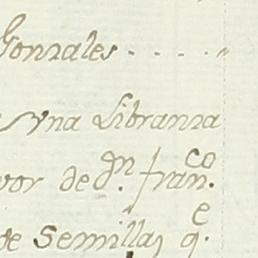 Gonzales . . . . "
s vna Libranza
vor de d.n fran.co
de Semillas q.e